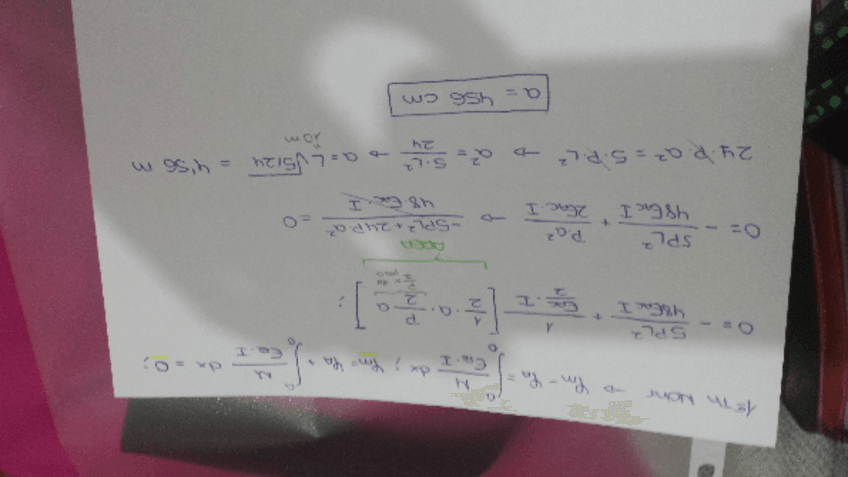 1º Th Mohr → φm - φa = ∫₀ᵃ M/(Eac·I) dx ; φm = φa + ∫₀ᵃ M/(Eac·I) dx = 0 ;
0 = - 5PL²/48EacI + 1/(Eac·I/2) [1/2 · a · P/2 a] ;
AREA
0 = - 5PL²/48EacI + P·a²/2Eac·I → (-5PL² + 24P·a²)/(48Eac·I) = 0
24·P·a² = 5·P·L² → a² = 5·L²/24 → a = L√5/24 = 4'56 m
10m
a = 456 cm